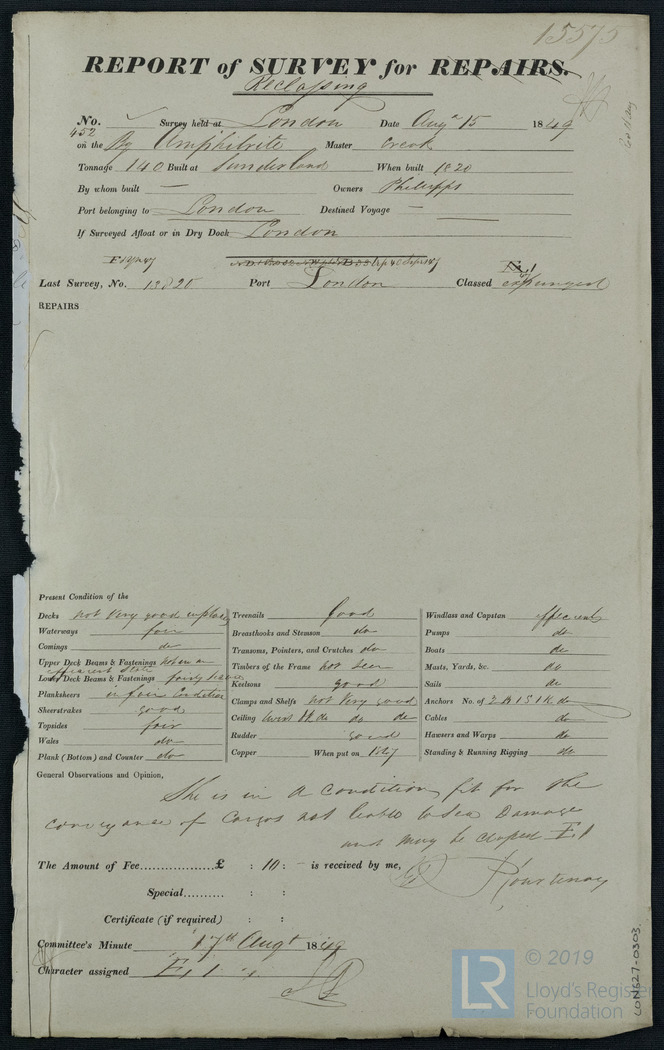 15575
REPORT of SURVEY for REPAIRS.
Reclassing
No. Survey held at London Date Augt 15 1849
452
on the Bg Amphitrite Master Creak
Tonnage 140 Built at Sunderland When built 1820
By whom built — Owners Philipps
Port belonging to London Destined Voyage —
If Surveyed Afloat or in Dry Dock London
Last Survey, No. 13820 Port London Classed expunged
REPAIRS
Present Condition of the
Decks not very good in places
Waterways fair
Comings do
Upper Deck Beams & Fastenings not in an
efficient state
Lower Deck Beams & Fastenings
Planksheers in fair Condition
Sheerstrakes good
Topsides fair
Wales do
Plank (Bottom) and Counter do
Treenails good
Breasthooks and Stemson do
Transoms, Pointers, and Crutches do
Timbers of the Frame not seen
Keelsons good
Clamps and Shelfs not very good
Ceiling do do do
Rudder good
Copper When put on 1847
Windlass and Capstan efficient
Pumps do
Boats do
Masts, Yards, &c. do
Sails do
Anchors No. of 3 B 1 S 1 K do
Cables do
Hawsers and Warps do
Standing & Running Rigging do
General Observations and Opinion,
She is in a Condition fit for the
conveyance of Cargos not liable to Sea Damage
and may be classed E 1
The Amount of Fee.................£ : 10 : – is received by me,
Courtenay
Special.......... : :
Certificate (if required) : :
Committee's Minute 17th Augt 1849
Character assigned E. 1
LON627-0303
LR
© 2019
Lloyd's Register
Foundation